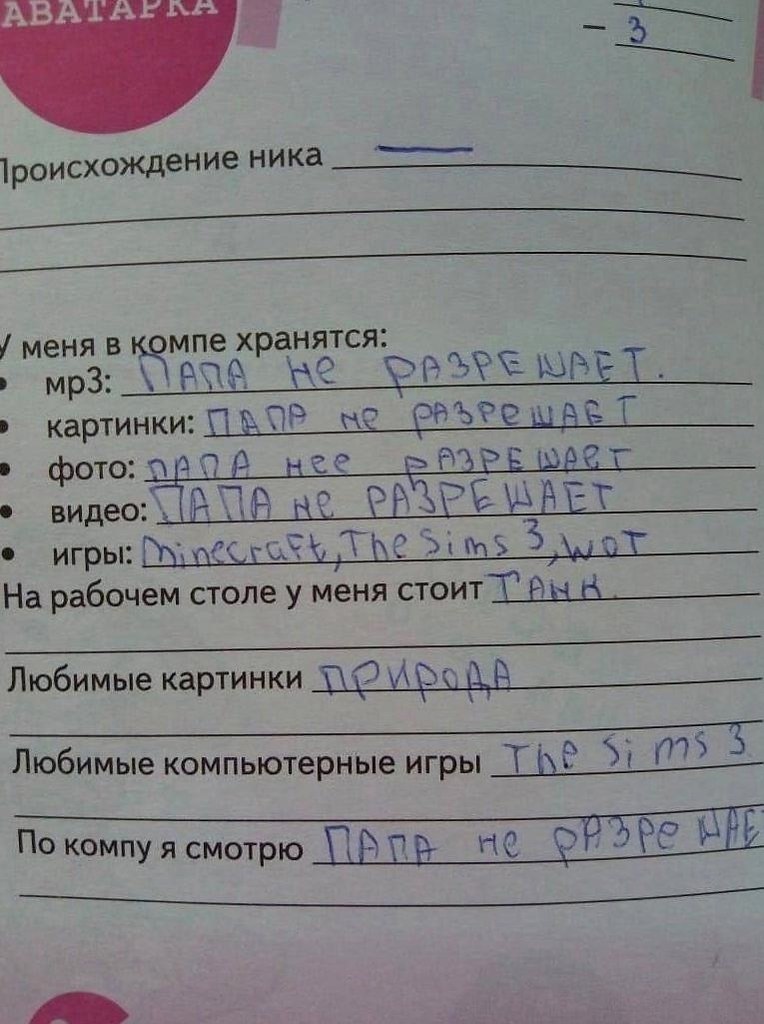 АВАТАРКА
– 3
Происхождение ника —
У меня в компе хранятся:
• мр3: ПАПА не РАЗРЕШАЕТ.
• картинки: ПАПА не РАЗРеШАЕТ
• фото: ПАПА нее РАЗРЕШАеТ
• видео: ПАПА не РАЗРЕШАЕТ
• игры: Minecraft, The Sims 3, WOT
На рабочем столе у меня стоит ТАНК.
Любимые картинки ПРИРОДА
Любимые компьютерные игры The Sims 3
По компу я смотрю ПАПА не РАЗРеШАЕ